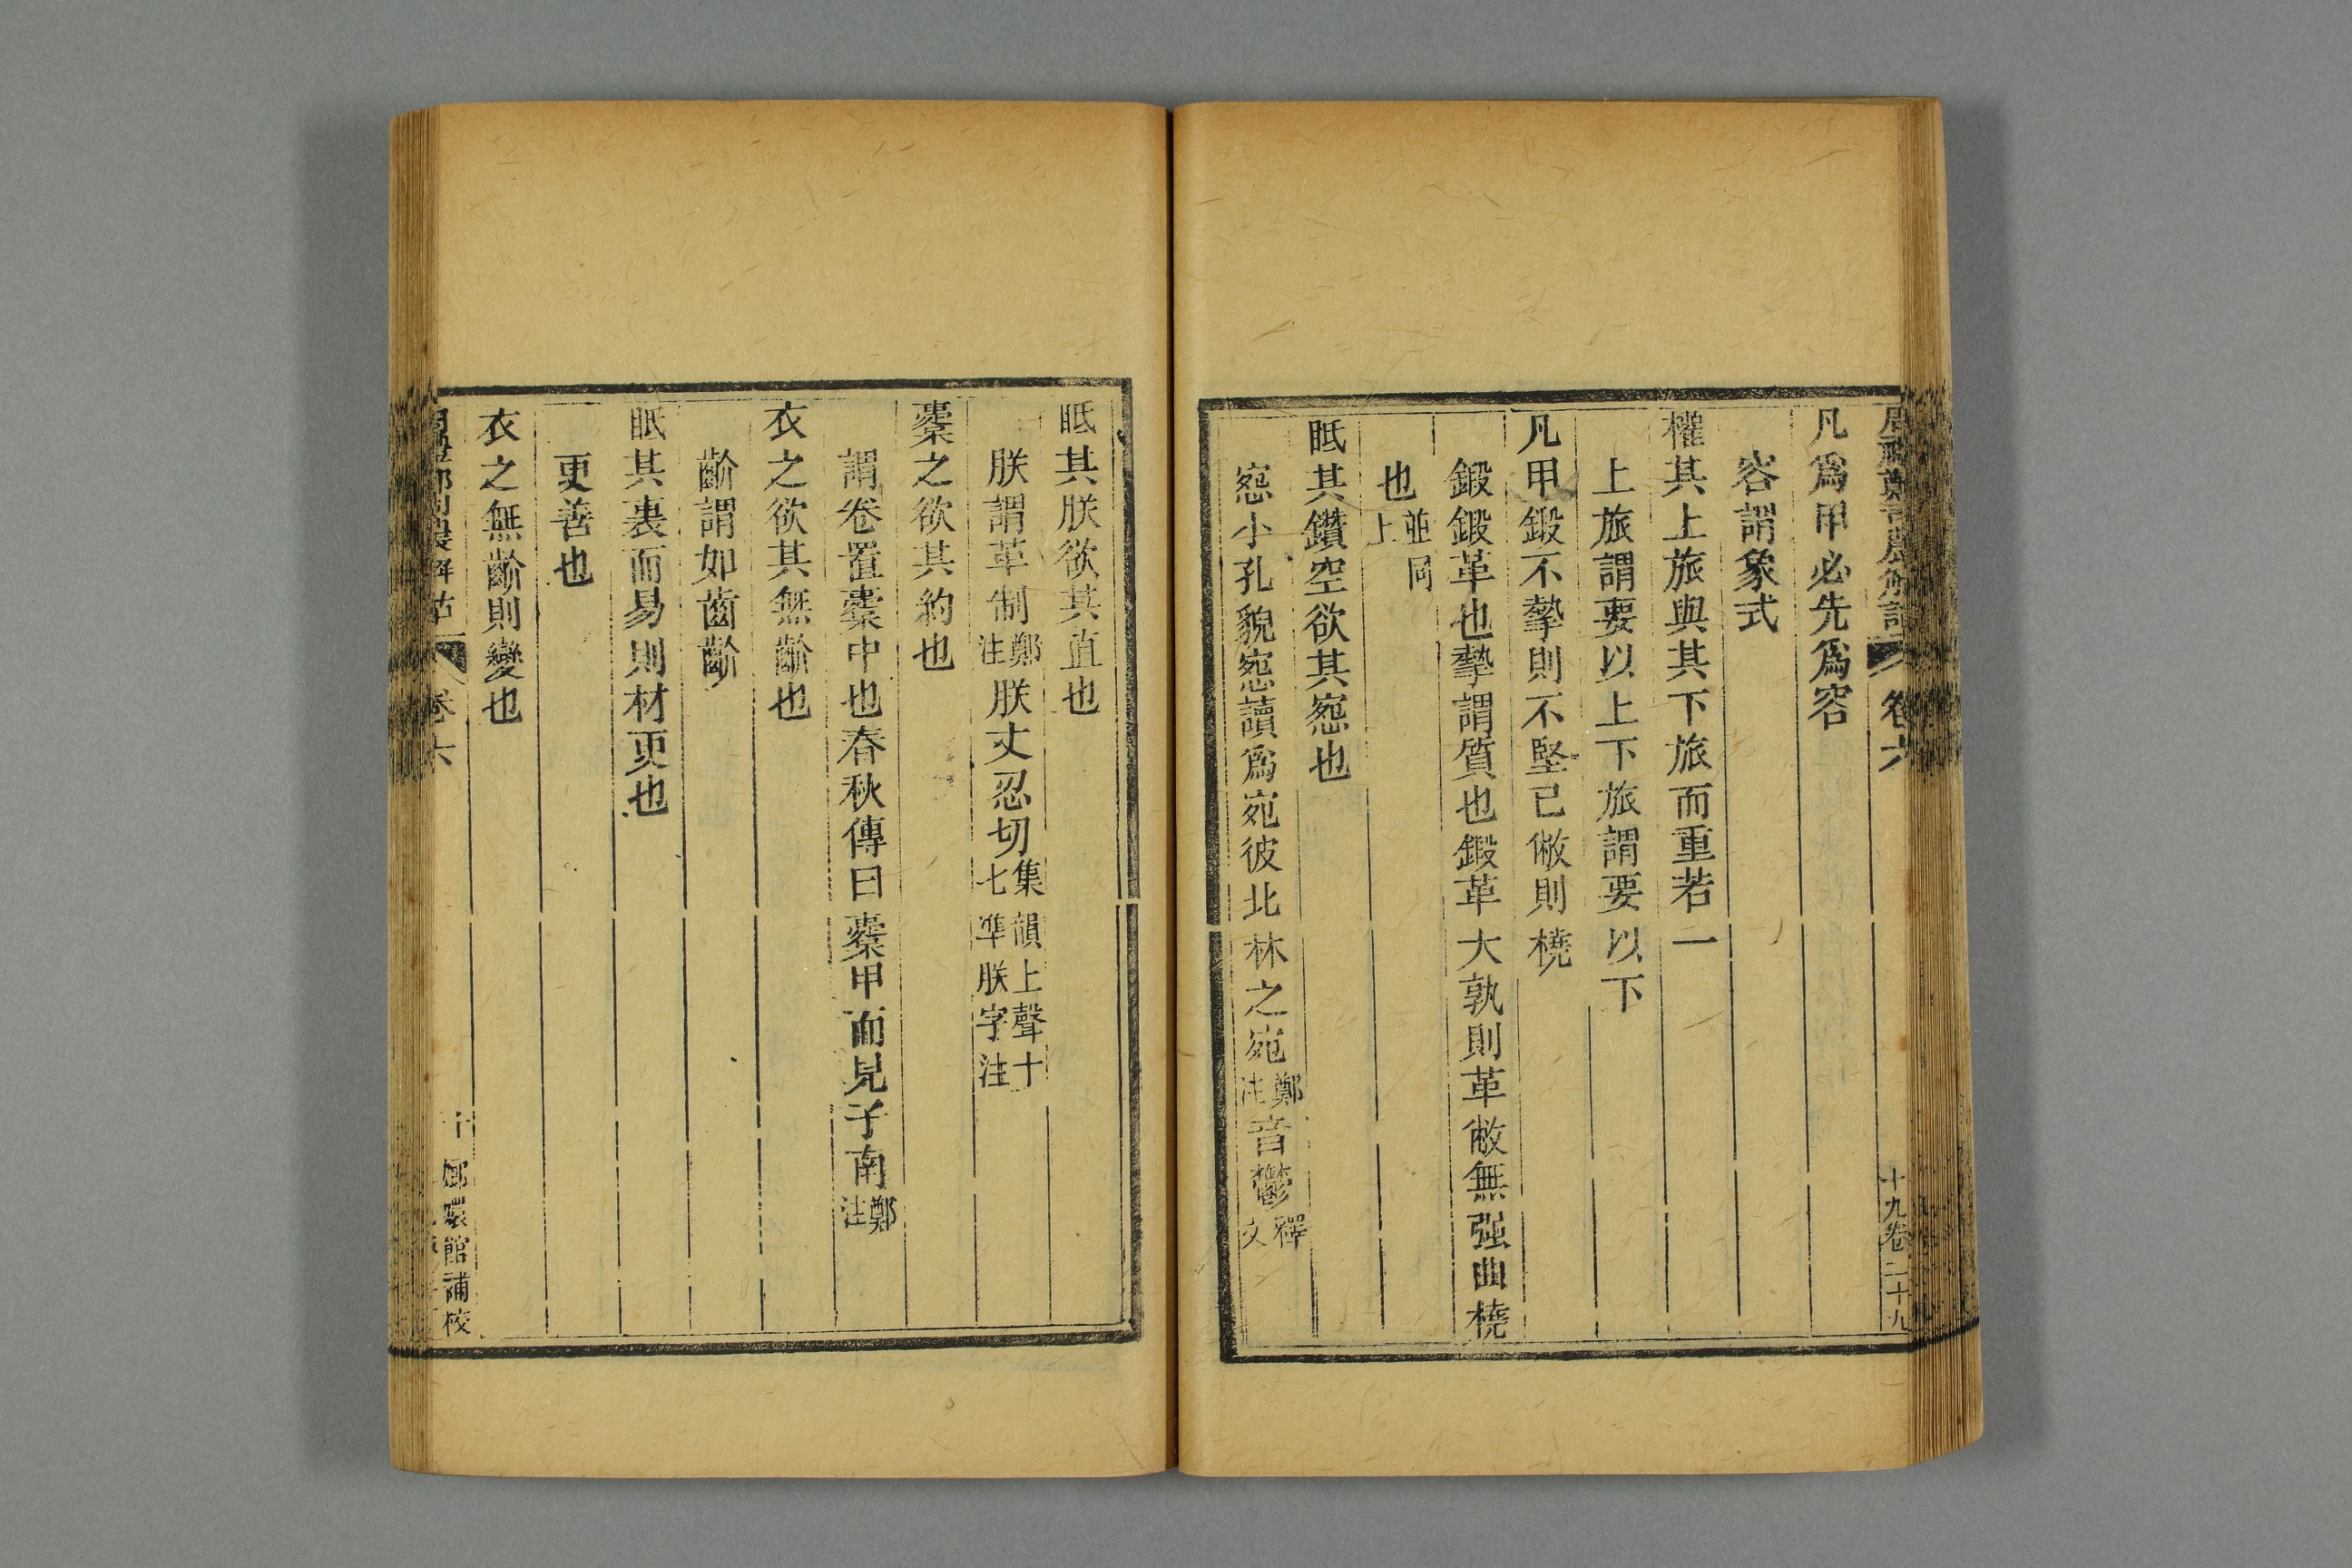 周禮鄭司農解詁 卷六 十九卷二十九
凡爲甲必先爲容
容謂象式
權其上旅與其下旅而重若一
上旅謂要以上下旅謂要以下
凡甲鍛不摯則不堅已敝則橈
鍛鍛革也摯謂質也鍛革大孰則革敝無强曲橈
也並同上
眡其鑽空欲其窐也
窐小孔貌窐讀爲宛彼北林之宛鄭注音鬱釋文
眡其朕欲其直也
朕謂革制鄭注朕丈忍切集韻上聲十七準朕字注
櫜之欲其約也
謂卷置櫜中也春秋傳曰櫜甲而見子南鄭注
衣之欲其無齘也
齘謂如齒齘
眡其裏而易則材更也
更善也
衣之無齘則變也
周禮鄭司農解詁 卷六 嫏嬛館補校